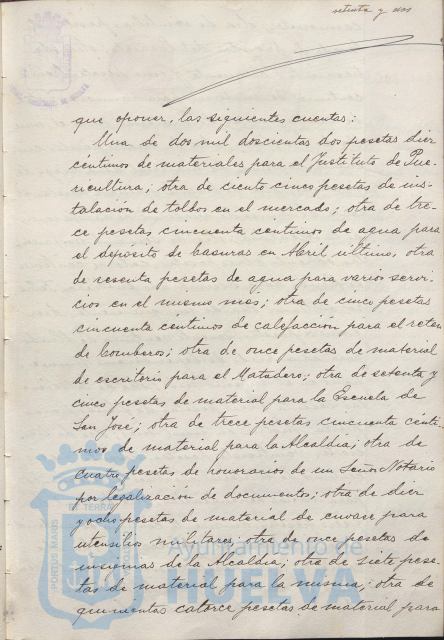 setenta y dos
que oponer, las siguientes cuentas:
Una de dos mil doscientas dos pesetas diez
céntimos de materiales para el Instituto de Pue-
ricultura; otra de ciento cinco pesetas de ins-
talación de toldos en el mercado; otra de tre-
ce pesetas cincuenta céntimos de agua para
el depósito de basuras en Abril último, otra
de sesenta pesetas de agua para varios servi-
cios en el mismo mes; otra de cinco pesetas
cincuenta céntimos de calefacción para el reten
de bomberos; otra de once pesetas de material
de escritorio para el Matadero; otra de setenta y
cinco pesetas de material para la Escuela de
San José; otra de trece pesetas cincuenta cénti-
mos de material para la Alcaldía; otra de
cuatro pesetas de honorarios de un Señor Notario
por legalización de documentos; otra de diez
y ocho pesetas de material de envase para
utensilio militares; otra de once pesetas de
insignias de la Alcaldía; otra de siete pese-
tas de material para la misma; otra de
quinientas catorce pesetas de material para
Ayuntamiento de
HUELVA
PORTUS MARIS
TERRAE